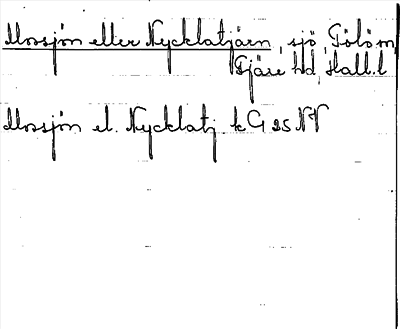 Mossjön eller Nycklatjärn, sjö, Fölöm,
Fjäre hd, Hall. l
Mossjön el. Nycklatj kG 25 NV